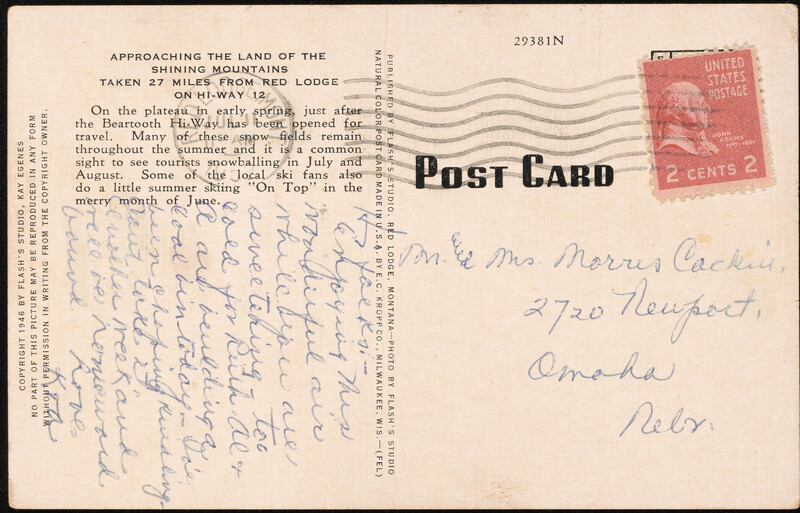 29381N
APPROACHING THE LAND OF THE
SHINING MOUNTAINS
TAKEN 27 MILES FROM RED LODGE
ON HI-WAY 12
On the plateau in early spring, just after
the Beartooth Hi-Way has been opened for
travel. Many of these snow fields remain
throughout the summer and it is a common
sight to see tourists snowballing in July and
August. Some of the local ski fans also
do a little summer skiing "On Top" in the
merry month of June.
COPYRIGHT 1946 BY FLASH'S STUDIO, KAY EGENES
NO PART OF THIS PICTURE MAY BE REPRODUCED IN ANY FORM
WITHOUT PERMISSION IN WRITING FROM THE COPYRIGHT OWNER.
Hi folks:—
Enjoying this
wonderful air
while you are
sweltering too
cold for Ruth. Al &
R are building a
coal bin today — I've
been chopping kindling.
another week and
will be homeward
bound. Love
PUBLISHED BY FLASH'S STUDIO, RED LODGE, MONTANA—PHOTO BY FLASH'S STUDIO
NATURAL COLOR POST CARD MADE IN U.S.A. BY E. C. KROPP CO., MILWAUKEE, WIS.—(FEL)
POST CARD
UNITED
STATES
POSTAGE
JOHN
ADAMS
1797-1801
2 CENTS 2
Mr. and Mrs. Morris
2720 Newport.
Omaha
Nebr.